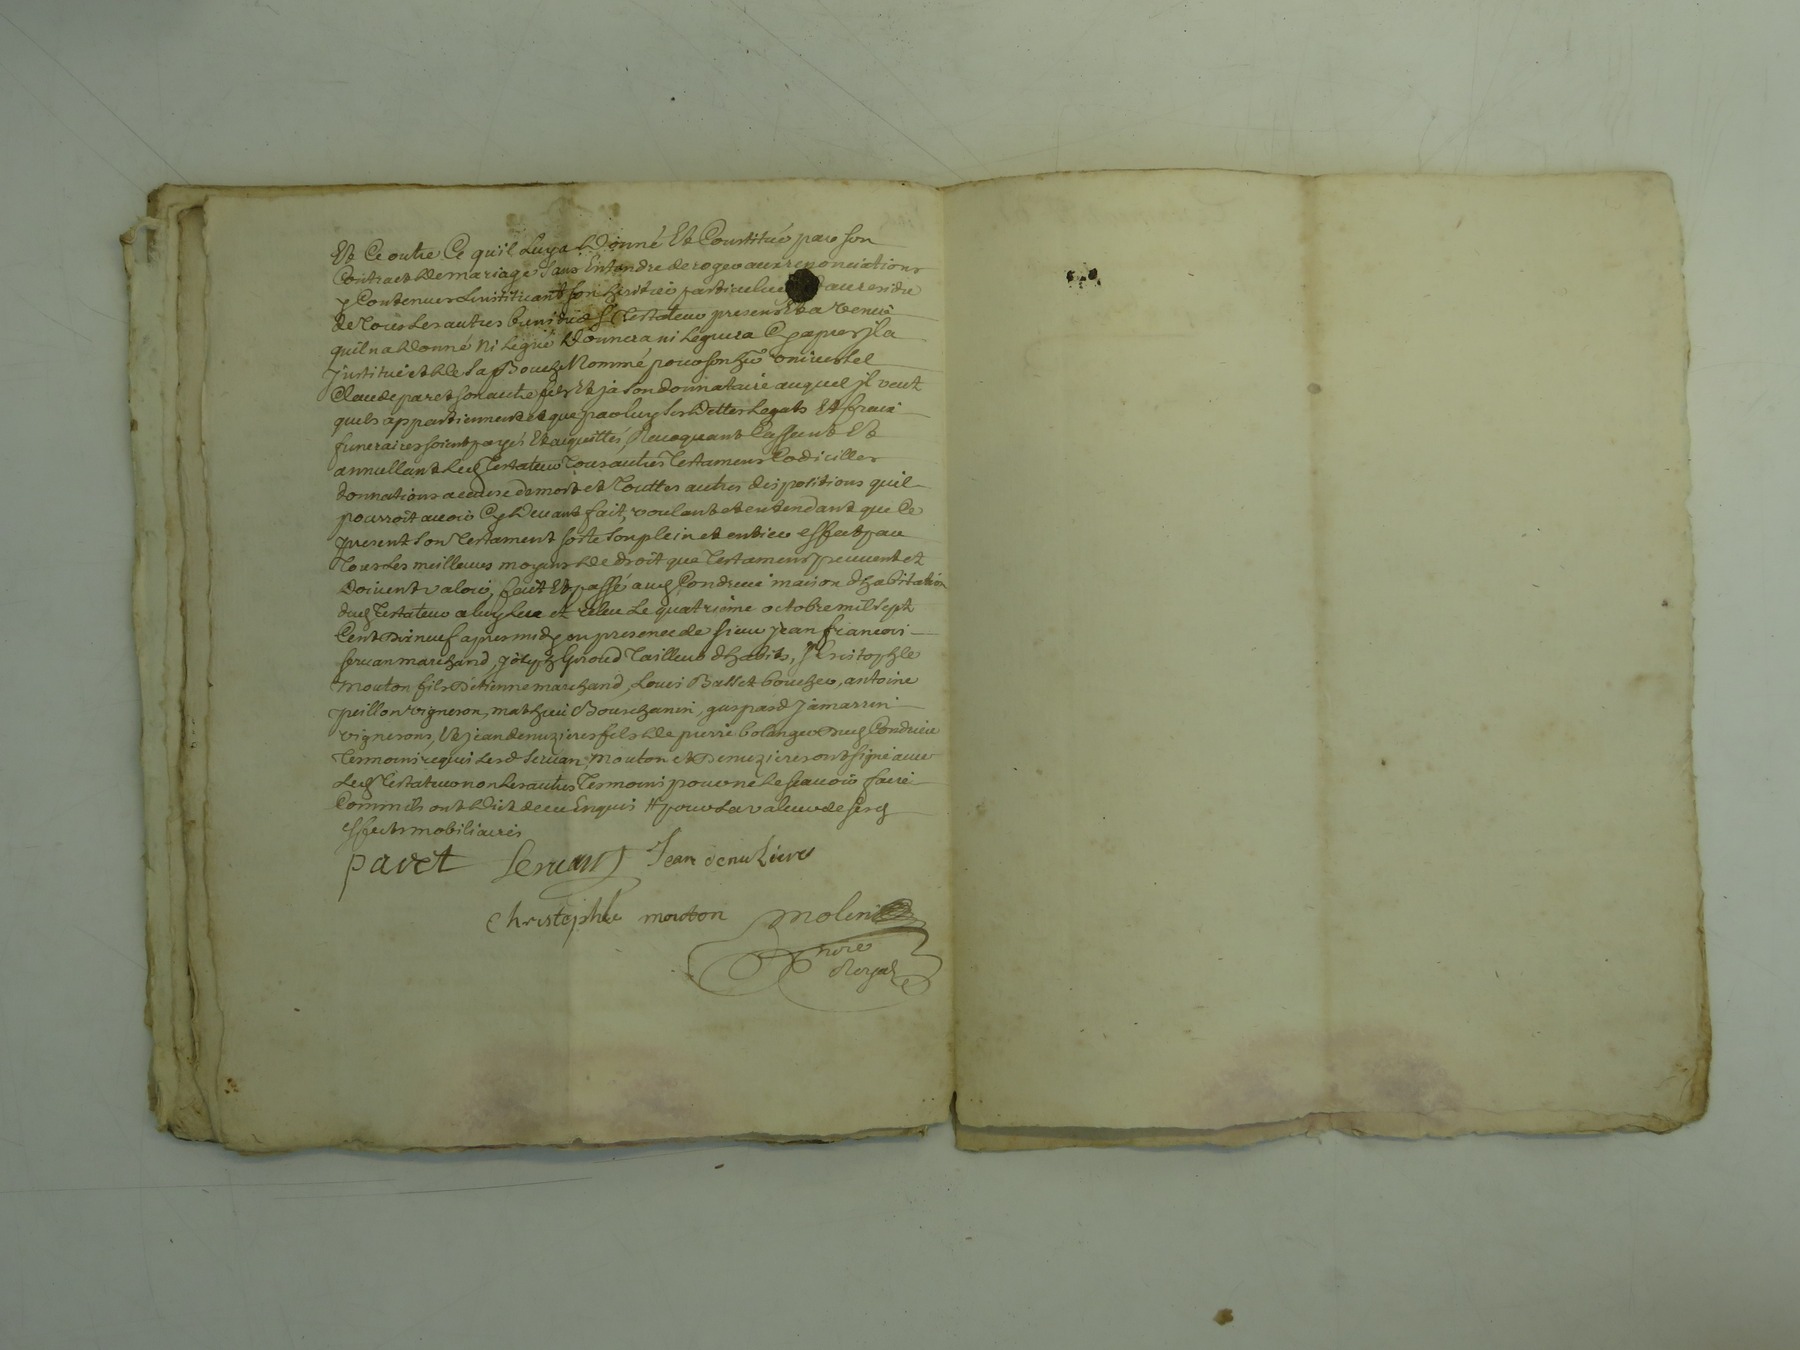 Et Ce outre Ce quil Luy a Donné Et Constitué par son
Contract de mariage sans Entendre deroger aux renonciations
y Contenues Linstituant son heritier particulier au residu
de Tous Les autres biens dud Testateur presens Et a Venir
quil na donné ni Legué donnera ni Leguera Cy apres jl a
justitué et de sa Bouche Nommé pour son her universel
Claude paret son autre fils Et ja son donnataire auquel jl veut
quils appartiennent et que par luy ses dettes Legats Et frais
funeraires soient payés Et acquittés, Revoquant Cassant Et
annullant Led Testateur Tous autres Testamens Codicilles
donnations a cause de mort et Touttes autres dispositions quil
pourroit avoir Cy devant fait, voulant et entendant que Ce
present son Testament sorte son plein et entier effect par
Tous Les meilleurs moyens de droit que Testamens peuvent et
doivent valoir, fait Et passé aud Condrieu maison dhabitation
dud Testateur a luy Leu et releu Le quatrieme octobre mil sept
Cent dix neuf apres midy en presence de sieur jean francois
servan marchand, Giroud Tailleur dhabits, sr Christophle
Mouton fils d'etienne marchand, Louis Basset boucher, antoine
peillon vigneron, mathieu Bourchanin, gaspard jamarrin
vignerons, Et jean denuzieres fils de pierre bolanger dud Condrieu
Tesmoins requis Lesd Servan, Mouton et Denuzieres ont signé avec
Led Testateur non Les autres Tesmoins pour ne Le scavoir faire
Comm'ils ont dict de ce Enquis # pour La valeur de sesd
effects mobiliaires
paret Servan Jean denuzieres
Christophle mouton Molin
nore
Royal